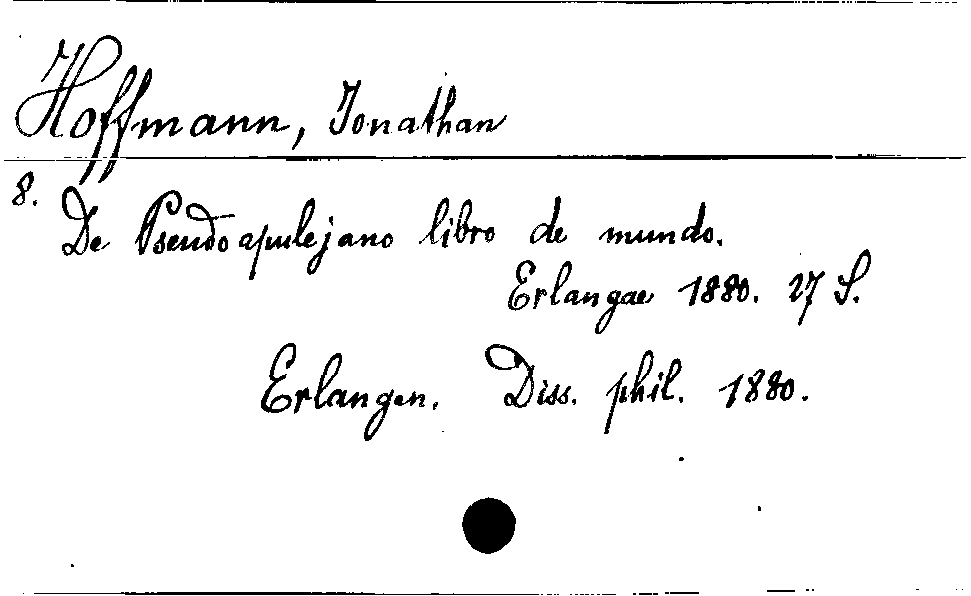 Hoffmann, Jonathan
8.
De Pseudoapulejano libro de mundo.
Erlangae 1880. 27 S.
Erlangen. Diss. phil. 1880.